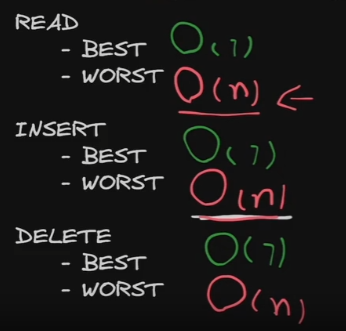 READ
- BEST O(1)
- WORST O(n) ←
INSERT
- BEST O(1)
- WORST O(n)
DELETE
- BEST O(1)
- WORST O(n)